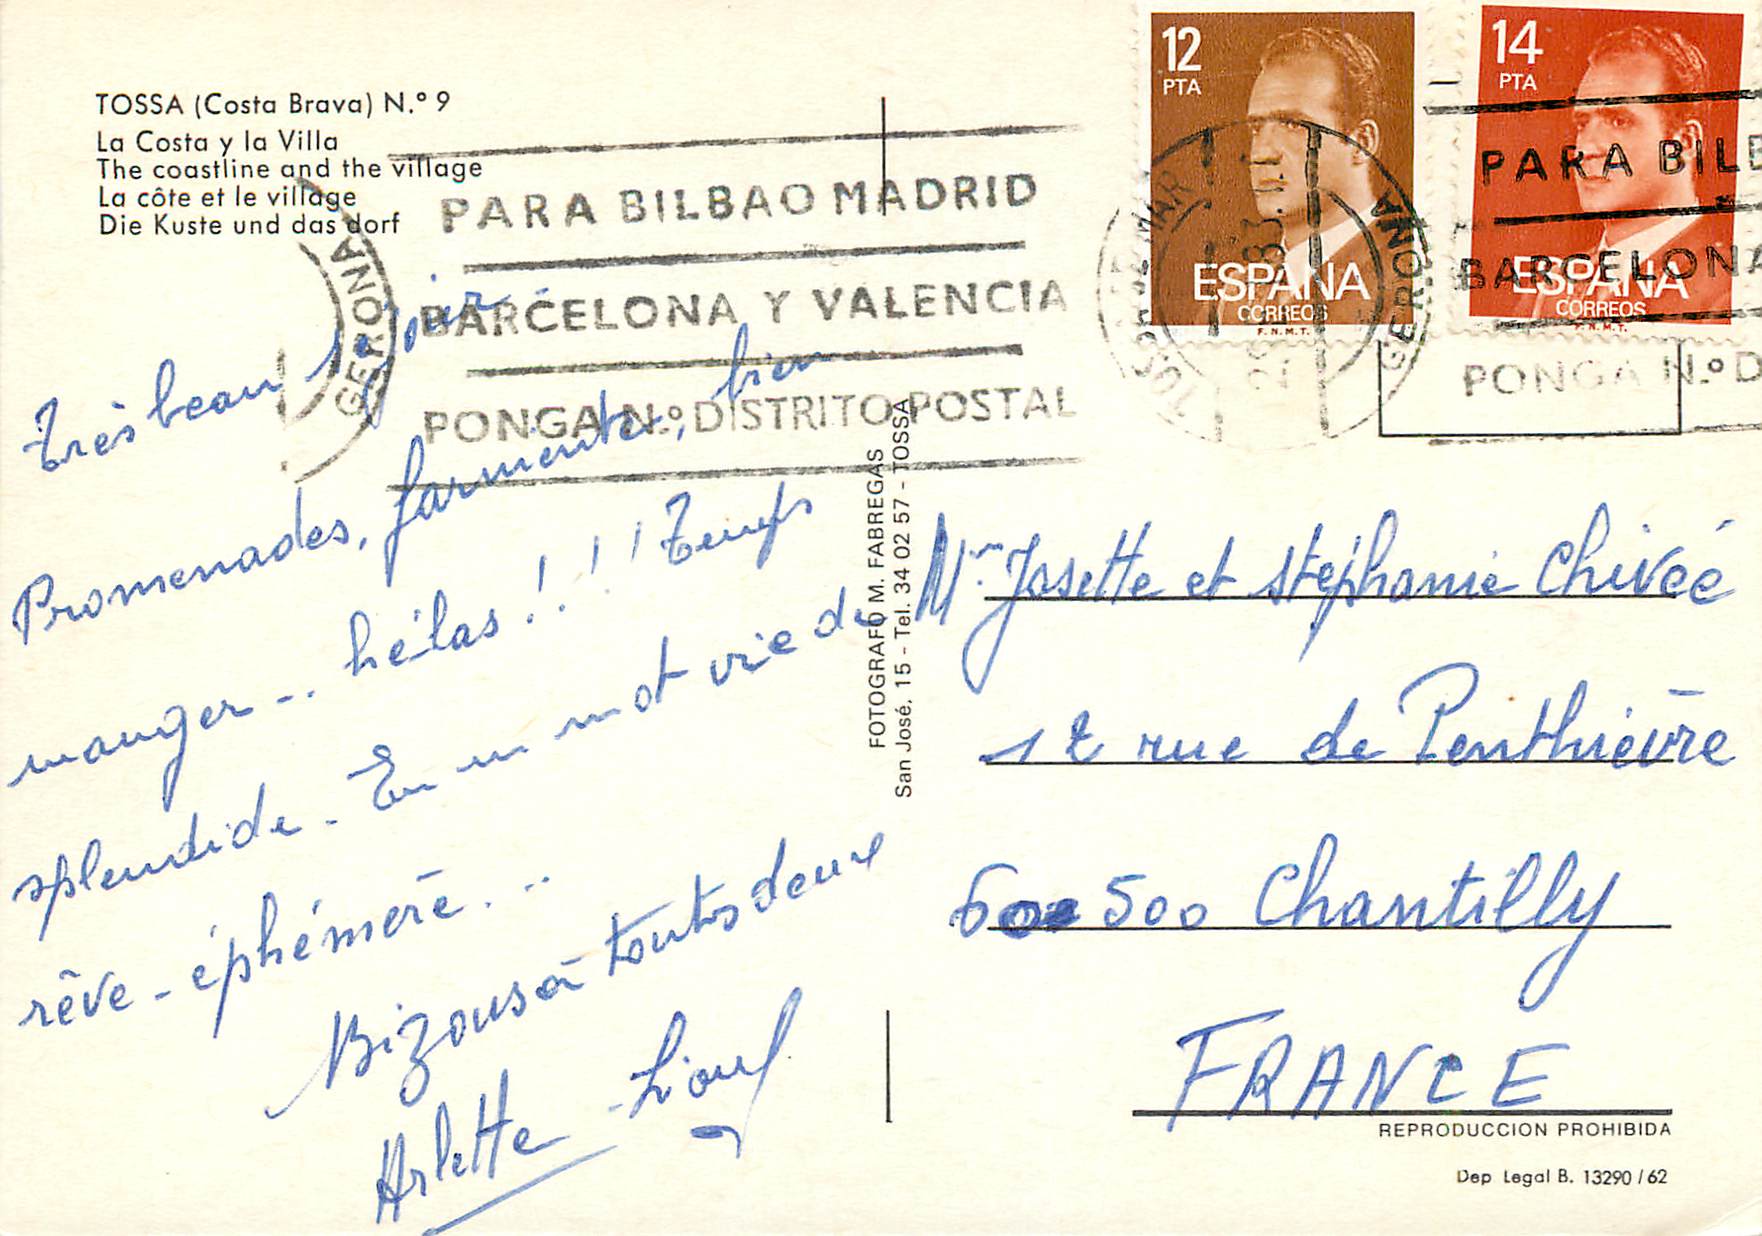 TOSSA (Costa Brava) N.º 9
La Costa y la Villa
The coastline and the village
La côte et le village
Die Kuste und das dorf
12
PTA
ESPAÑA
CORREOS
F.N.M.T.
14
PTA
ESPAÑA
CORREOS
F.N.M.T.
GERONA
PARA BILBAO MADRID
BARCELONA Y VALENCIA
PONGA N.º DISTRITO POSTAL
TOSSA DE MAR
83
GERONA
PARA BILB
BARCELONA
PONGA N.º D
Très beau séjour.
Promenades, farniente, bien
manger... hélas!!! Temps
splendide - En un mot vie de
rêve - éphémère...
Bizous à toutes deux
Arlette - Lionel
FOTOGRAFO M. FABREGAS
San José, 15 - Tel. 34 02 57 - TOSSA
Josette et Stéphanie Chivée
12 rue de Penthièvre
60500 Chantilly
FRANCE
REPRODUCCION PROHIBIDA
Dep Legal B. 13290/62